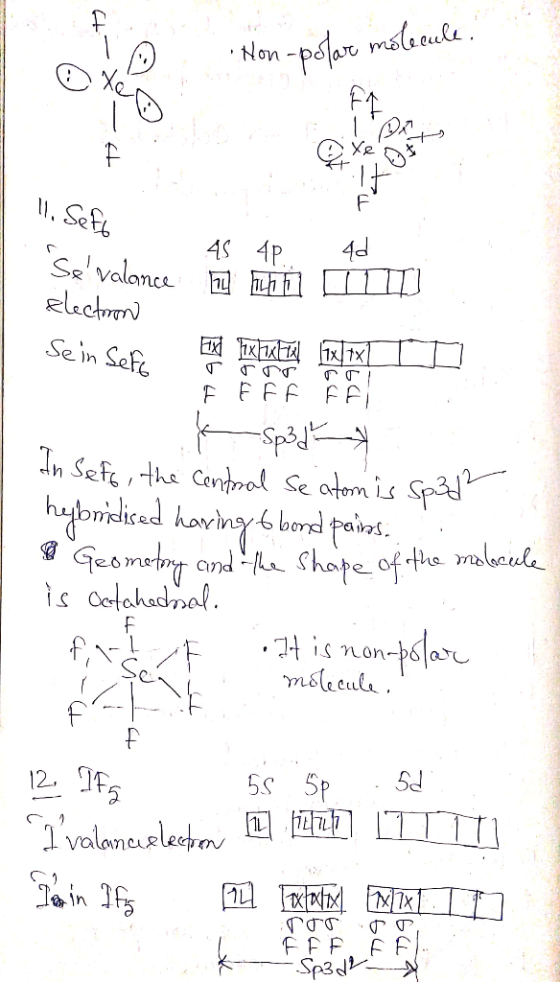 F
Xe
F
· Non-polar molecule.
F
Xe
F
11. SeF6
4s 4p 4d
'Se' valance
electron
Se in SeF6
σ σ σ σ σ σ
F F F F F F
sp3d2
In SeF6, the central Se atom is sp3d2
hybridised having 6 bond pairs.
Geometry and the shape of the molecule
is octahedral.
F
F F
Se
F F
F
· It is non-polar
molecule.
12. IF5
5s 5p 5d
'I' valance electron
'I' in IF5
σ σ σ σ σ
F F F F F
sp3d2